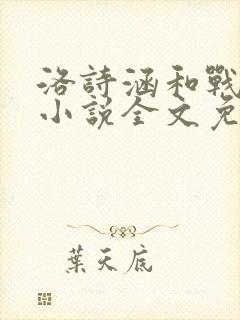 洛詩涵和戰
小說全文免
葉天底